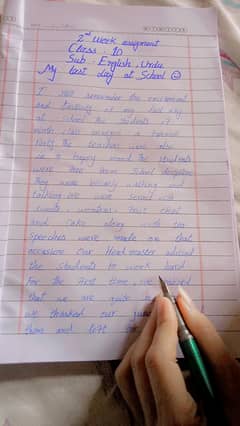 2nd Week assignment
Class : 10
Sub : English, Urdu
My last day at School
I still remember the excitement
and festivity of my last day
at school. The students of
ninth class arranged a farewell
Party. The teachers were also
in a happy mood. The students
were free from School discipline
They were merely walking and
talking. We were served with
sweets, samosas, fruit chat
and cake along with tea
Speeches were made on that
occasion. Our Head master advised
the students to work hard
For the first time, we
that we are quite
we thanked our
them and left